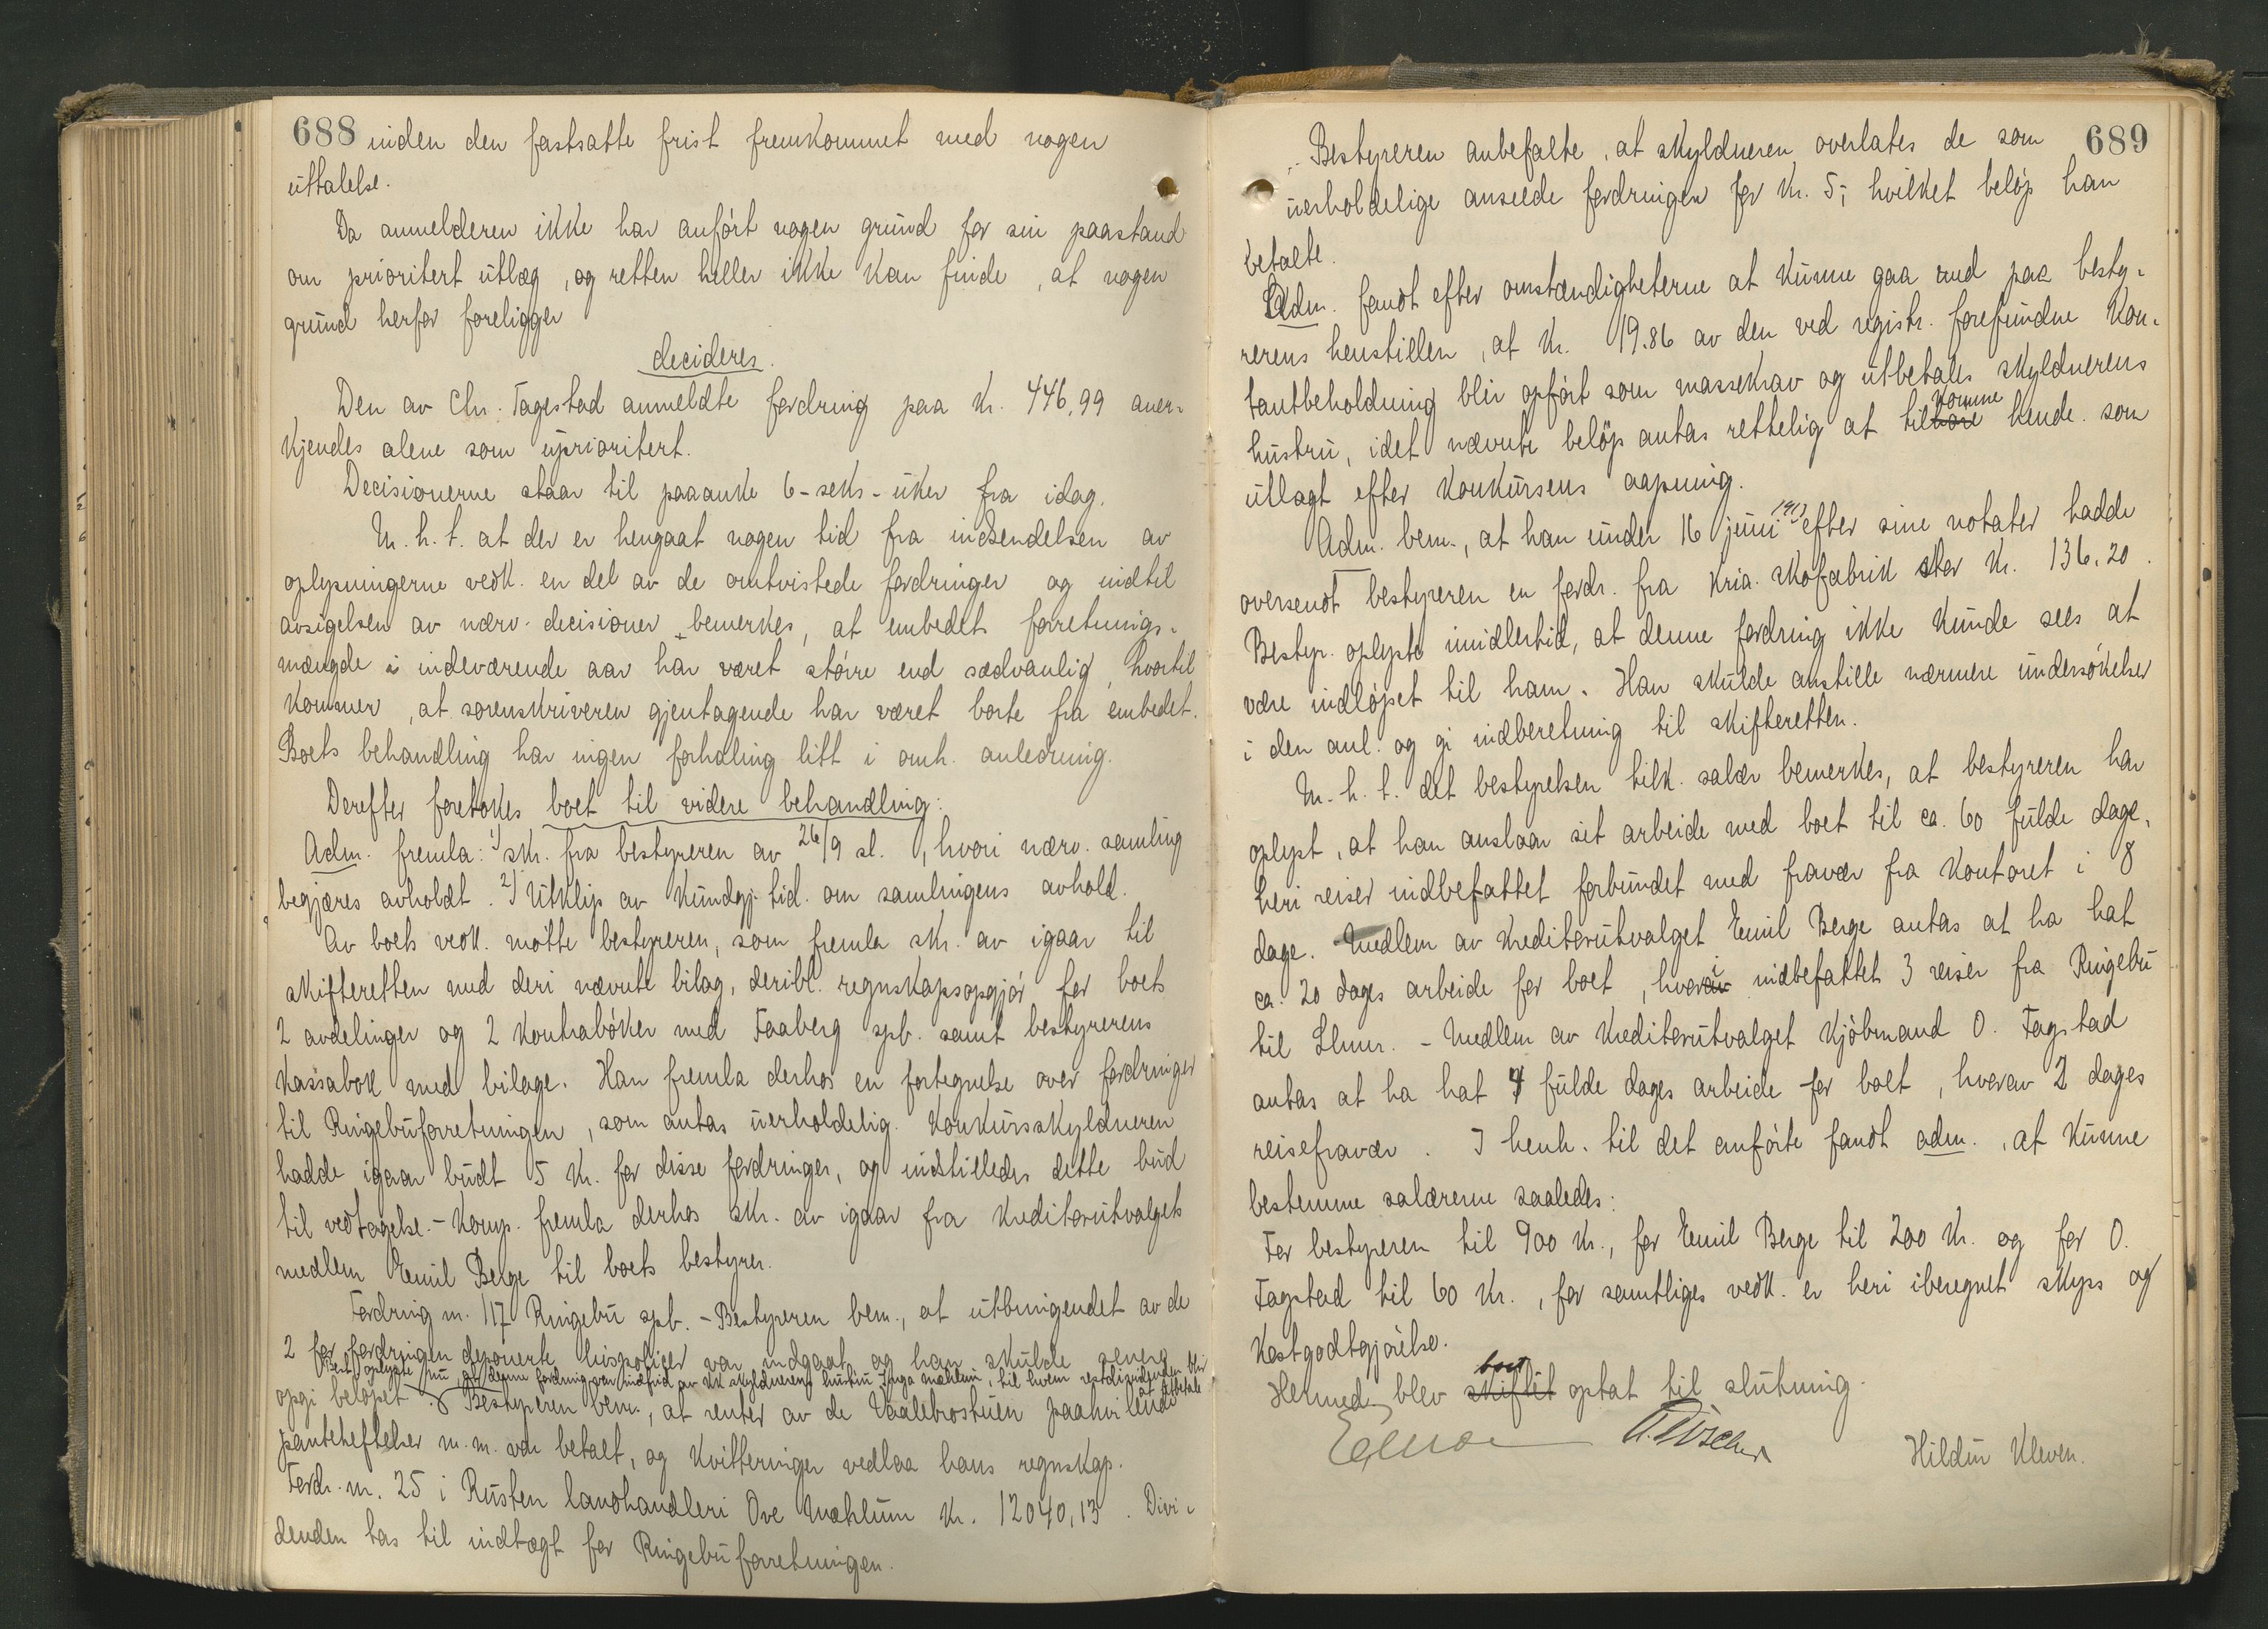 688 inden den fastsatte frist fremkommet med nogen
uttalelse.
Da anmelderen ikke har anført nogen grund for sin paastand
om prioritert utlæg, og retten heller ikke kan finde, at nogen
grund herfor foreligger
decideres.
Den av Chr. Fagestad anmeldte fordring paa kr. 446,99 aner-
kjendes alene som uprioritert.
Decisionerne staar til paaanke 6-seks-uker fra idag.
M. h. t. at der er hengaat nogen tid fra indsendelsen av
oplysningerne vedk. en del av de omtvistede fordringer og indtil
avsigelsen av nærv. decisioner bemerkes, at embedets forretnings-
mængde i indeværende aar har været større end sædvanlig, hvortil
kommer, at sorenskriveren gjentagende har været borte fra embedet.
Boets behandling har ingen forhaling litt i omh. anledning.
Derefter foretokes boet til videre behandling:
Adm. fremla: 1) skr. fra bestyreren av 26/9 sl., hvori nærv. samling
begjæres avholdt. 2) Utklip av kundgj. tid. om samlingens avhold.
Av boets vedk. møtte bestyreren, som fremla skr. av igaar til
skifteretten med deri nævnte bilag, deribl. regnskapsopgjør for boets
2 avdelinger og 2 kontrabøker med Faaberg spb. samt bestyrerens
kassabok med bilage. Han fremla derhos en fortegnelse over fordringer
til Ringebuforretningen, som antas uerholdelig. Konkursskyldneren
hadde igaar budt 5 kr. for disse fordringer, og indstilledes dette bud
til vedtagelse. - Komp. fremla derhos skr. av igaar fra kreditorutvalgets
medlem Emil Berge til boets bestyrer.
Fordring nr. 117 Ringebu spb. - Bestyreren bem., at utbringendet av de
2 for fordringen deponerte livspoliser var indgaat og han skulde senere
Best. oplyste nu, at denne fordring var indfrid av kk skyldnerens hustru Inga Mæhlum, til hvem restdividenden blir at utbetale
opgi beløpet. Bestyreren bem., at renter av de Vaalebrostuen paahvilende
panteheftelser m. m. var betalt, og kvitteringer vedlaa hans regnskap.
Fordr. nr. 25 i Rusten landhandleri Ove Mæhlum kr. 12040,13. Divi-
denden tas til indtægt for Ringebuforretningen.
689
Bestyreren anbefalte, at skyldneren overlates de som
uerholdelige anseede fordringer for kr. 5,- hvilket beløp han
betalte.
Adm. fandt efter omstændigheterne at kunne gaa med paa besty-
rerens henstillen, at kr. 19.86 av den ved registr. forefundne kon-
tantbeholdning blir opført som massekrav og utbetales skyldnerens
komme
hustru, idet nævnte beløp antas rettelig at tilhøre hende som
utlagt efter konkursens aapning.
1913
Adm. bem., at han under 16 juni efter sine notater hadde
oversendt bestyreren en fordr. fra Kria. skofabrik stor kr. 136.20.
Bestyr. oplyste imidlertid, at denne fordring ikke kunde sees at
være indløpet til ham. Han skulde anstille nærmere undersøkelser
i den anl. og gi indberetning til skifteretten.
M. h. t. det bestyrelsen tilk. salær bemerkes, at bestyreren har
oplyst, at han anslaar sit arbeide med boet til ca. 60 fulde dage,
heri reiser indbefattet forbundet med fravær fra kontoret i 8
dage. Medlem av kreditorutvalget Emil Berge antas at ha hat
ca. 20 dages arbeide for boet, hvori indbefattet 3 reiser fra Ringebu
til Lhmr. - Medlem av kreditorutvalget kjøbmand O. Fagstad
antas at ha hat 4 fulde dages arbeide for boet, hvorav 2 dages
reisefravær. I henh. til det anførte fandt adm. at kunne
bestemme salærerne saaledes:
For bestyreren til 900 kr., for Emil Berge til 200 kr. og for O.
Fagstad til 60 kr., for samtliges vedk. er heri iberegnet skyss og
kostgodtgjørelse.
boet
Hermed blev skiftet optat til slutning.
Hildur Kleven.